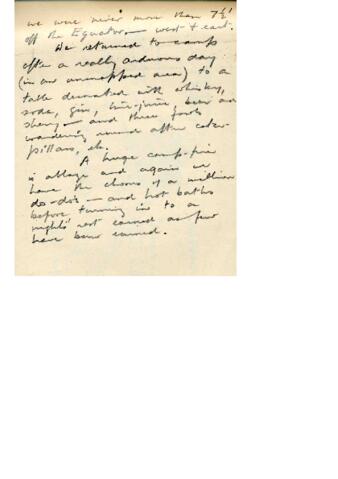 we were never more than 7½'
off the Equator – west & east.
We returned to camp
after a really arduous day
(in an unmapped area) to a
table decorated with whisky,
soda, gin, lime-juice, beer and
sherry – and three fowls
wandering round after cater-
pillars, etc.
A huge camp-fire
is ablaze and again we
have the chorus of a million
do-dos – and hot baths
before turning in to a
night's rest earned as few
have been earned.